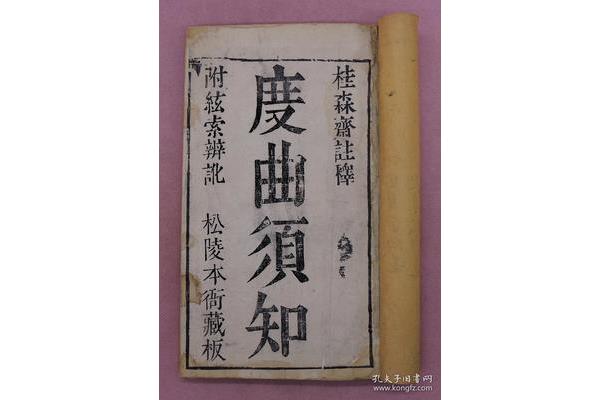 桂森齋註釋
度曲須知
附絃索辨訛 松陵本衙藏板
孔夫子旧书网
www.kongfz.com